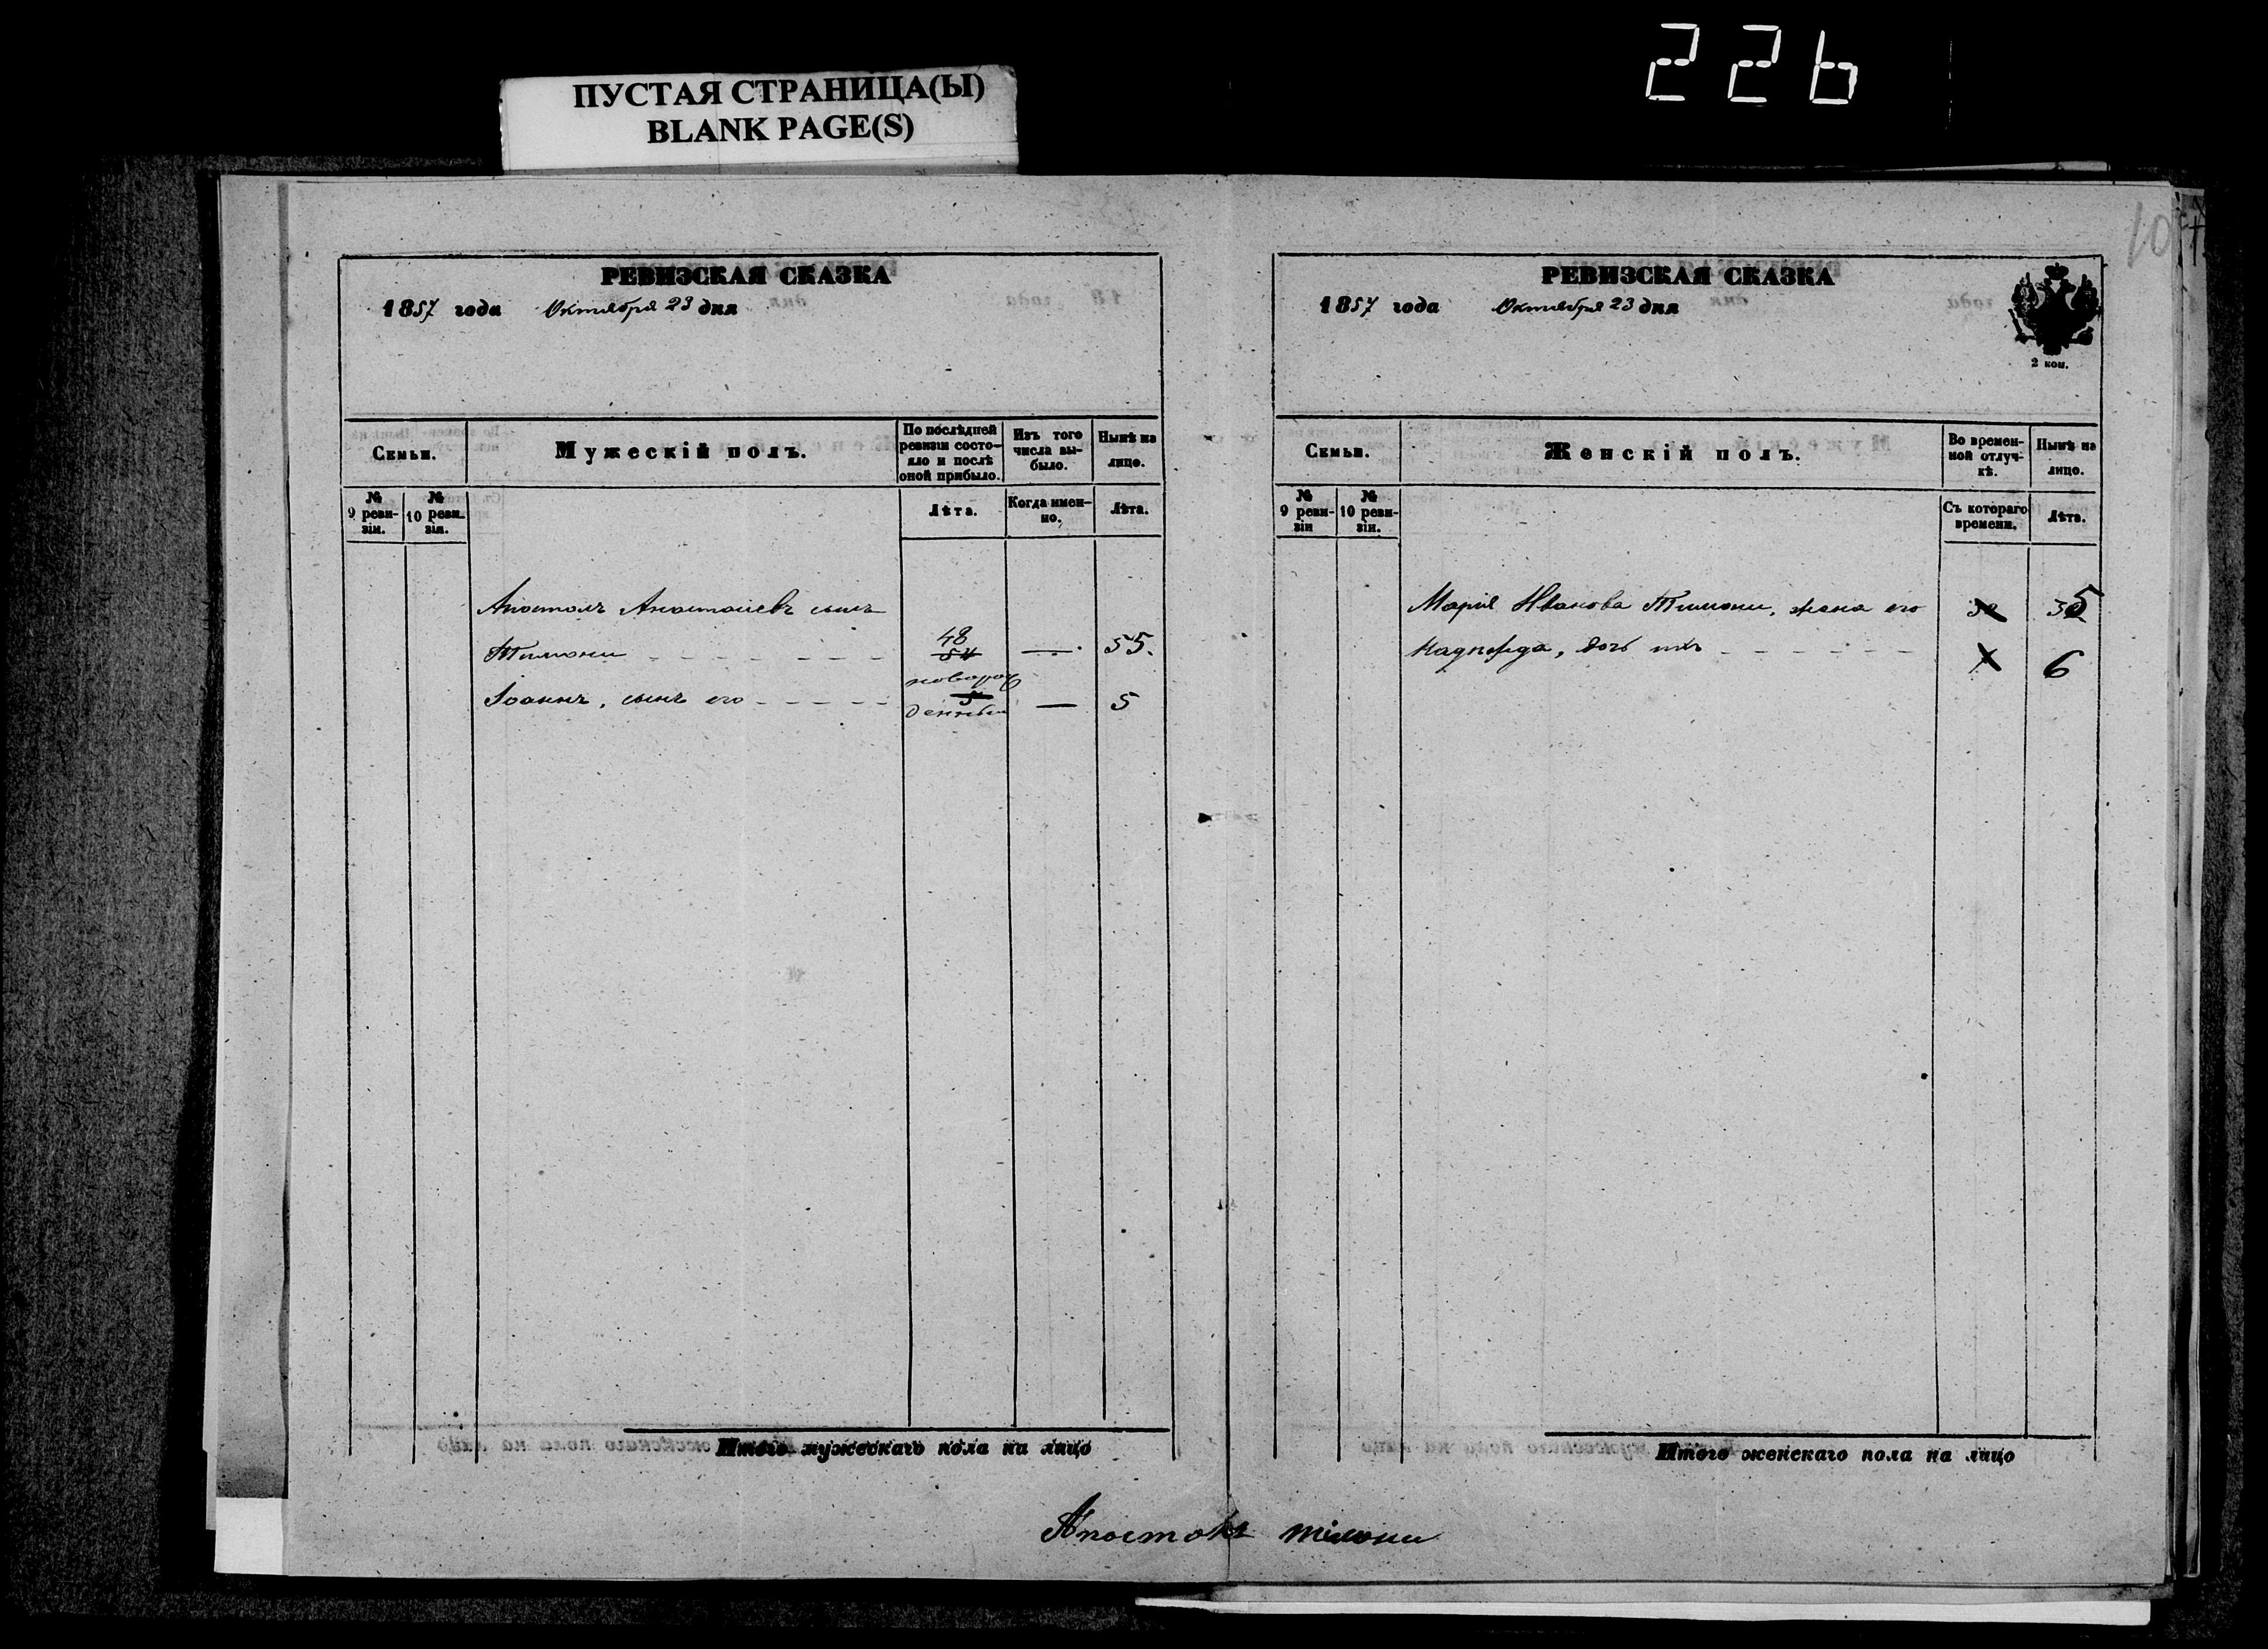 226
ПУСТАЯ СТРАНИЦА(Ы)
BLANK PAGE(S)
10
РЕВИЗСКАЯ СКАЗКА
1857 года Октября 23 дня
Семьи.
Мужескій полъ.
По послѣдней ревизіи состо-
яло и послѣ оной прибыло.
Изъ того числа вы-
было.
Нынѣ на лицо.
№ 9 реви-
зіи.
№ 10 реви-
зіи.
Лѣта.
Когда имен-
но.
Лѣта.
Апостолъ Анастасіевъ сынъ
Тимони 48 54 — 55.
Іоаннъ, сынъ его новорож
5 — 5
денный
Итого мужескаго пола на лицо
РЕВИЗСКАЯ СКАЗКА
1857 года Октября 23 дня
2 коп.
Семьи.
Женскій полъ.
Во времен-
ной отлуч-
кѣ.
Нынѣ на лицо.
№ 9 реви-
зіи
№ 10 реви-
зіи.
Съ котораго времени.
Лѣта.
Марія Иванова Тимони, жена его 35
Надежда, дочь ихъ 6
Итого женскаго пола на лицо
Апостолъ Тимони